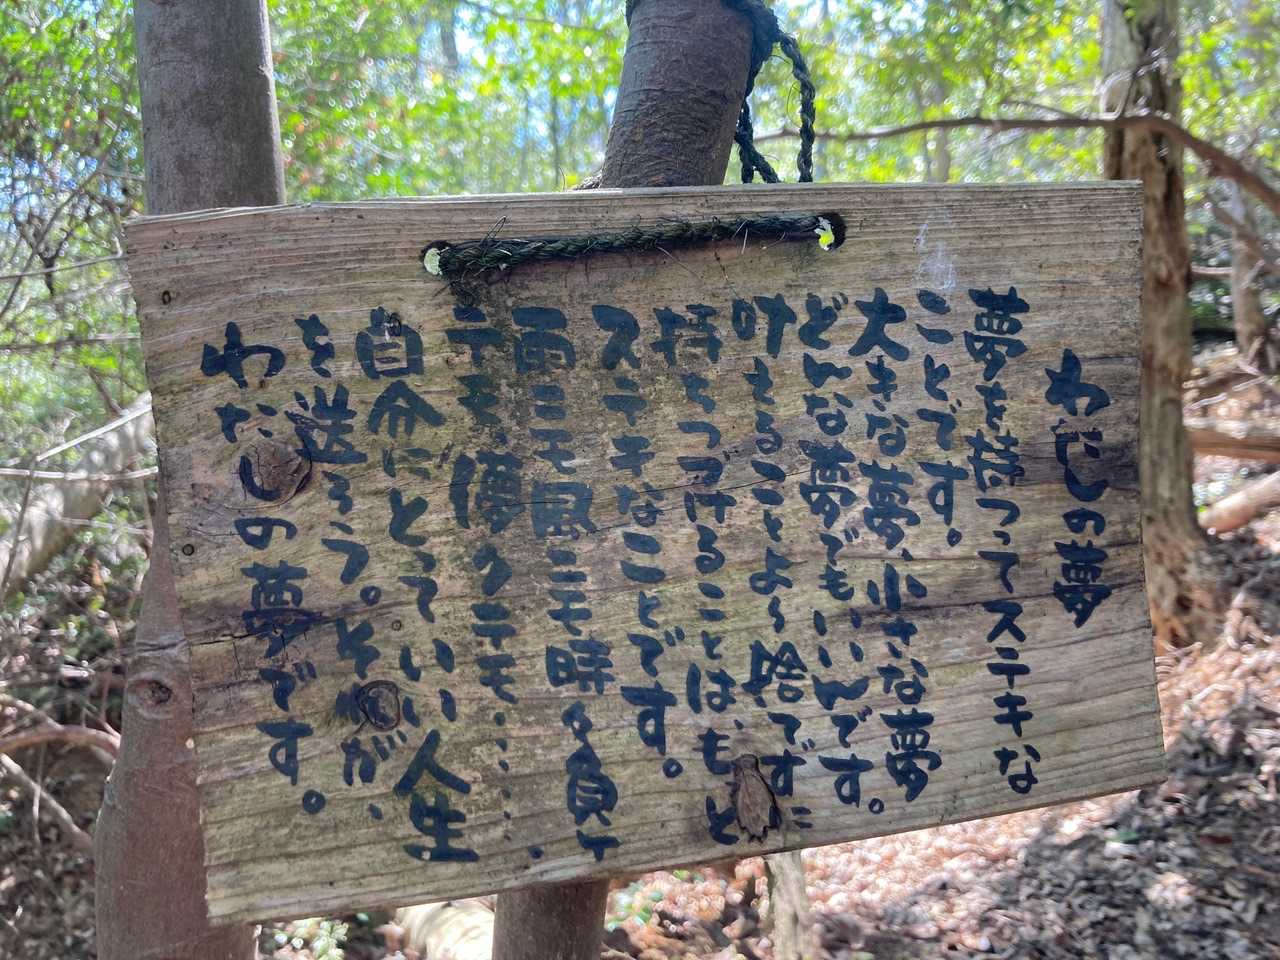 わたしの夢
夢を持ってステキな
ことです。
大きな夢、小さな夢
どんな夢でもいいんです。
叶えることより捨てずに
持ちつづけることは、もっと
ステキなことです。
雨ニモ風ニモ時々負ケ
テモ、儚クテモ……
自分にとっていい人生
を送ろう。それが、
わたしの夢です。